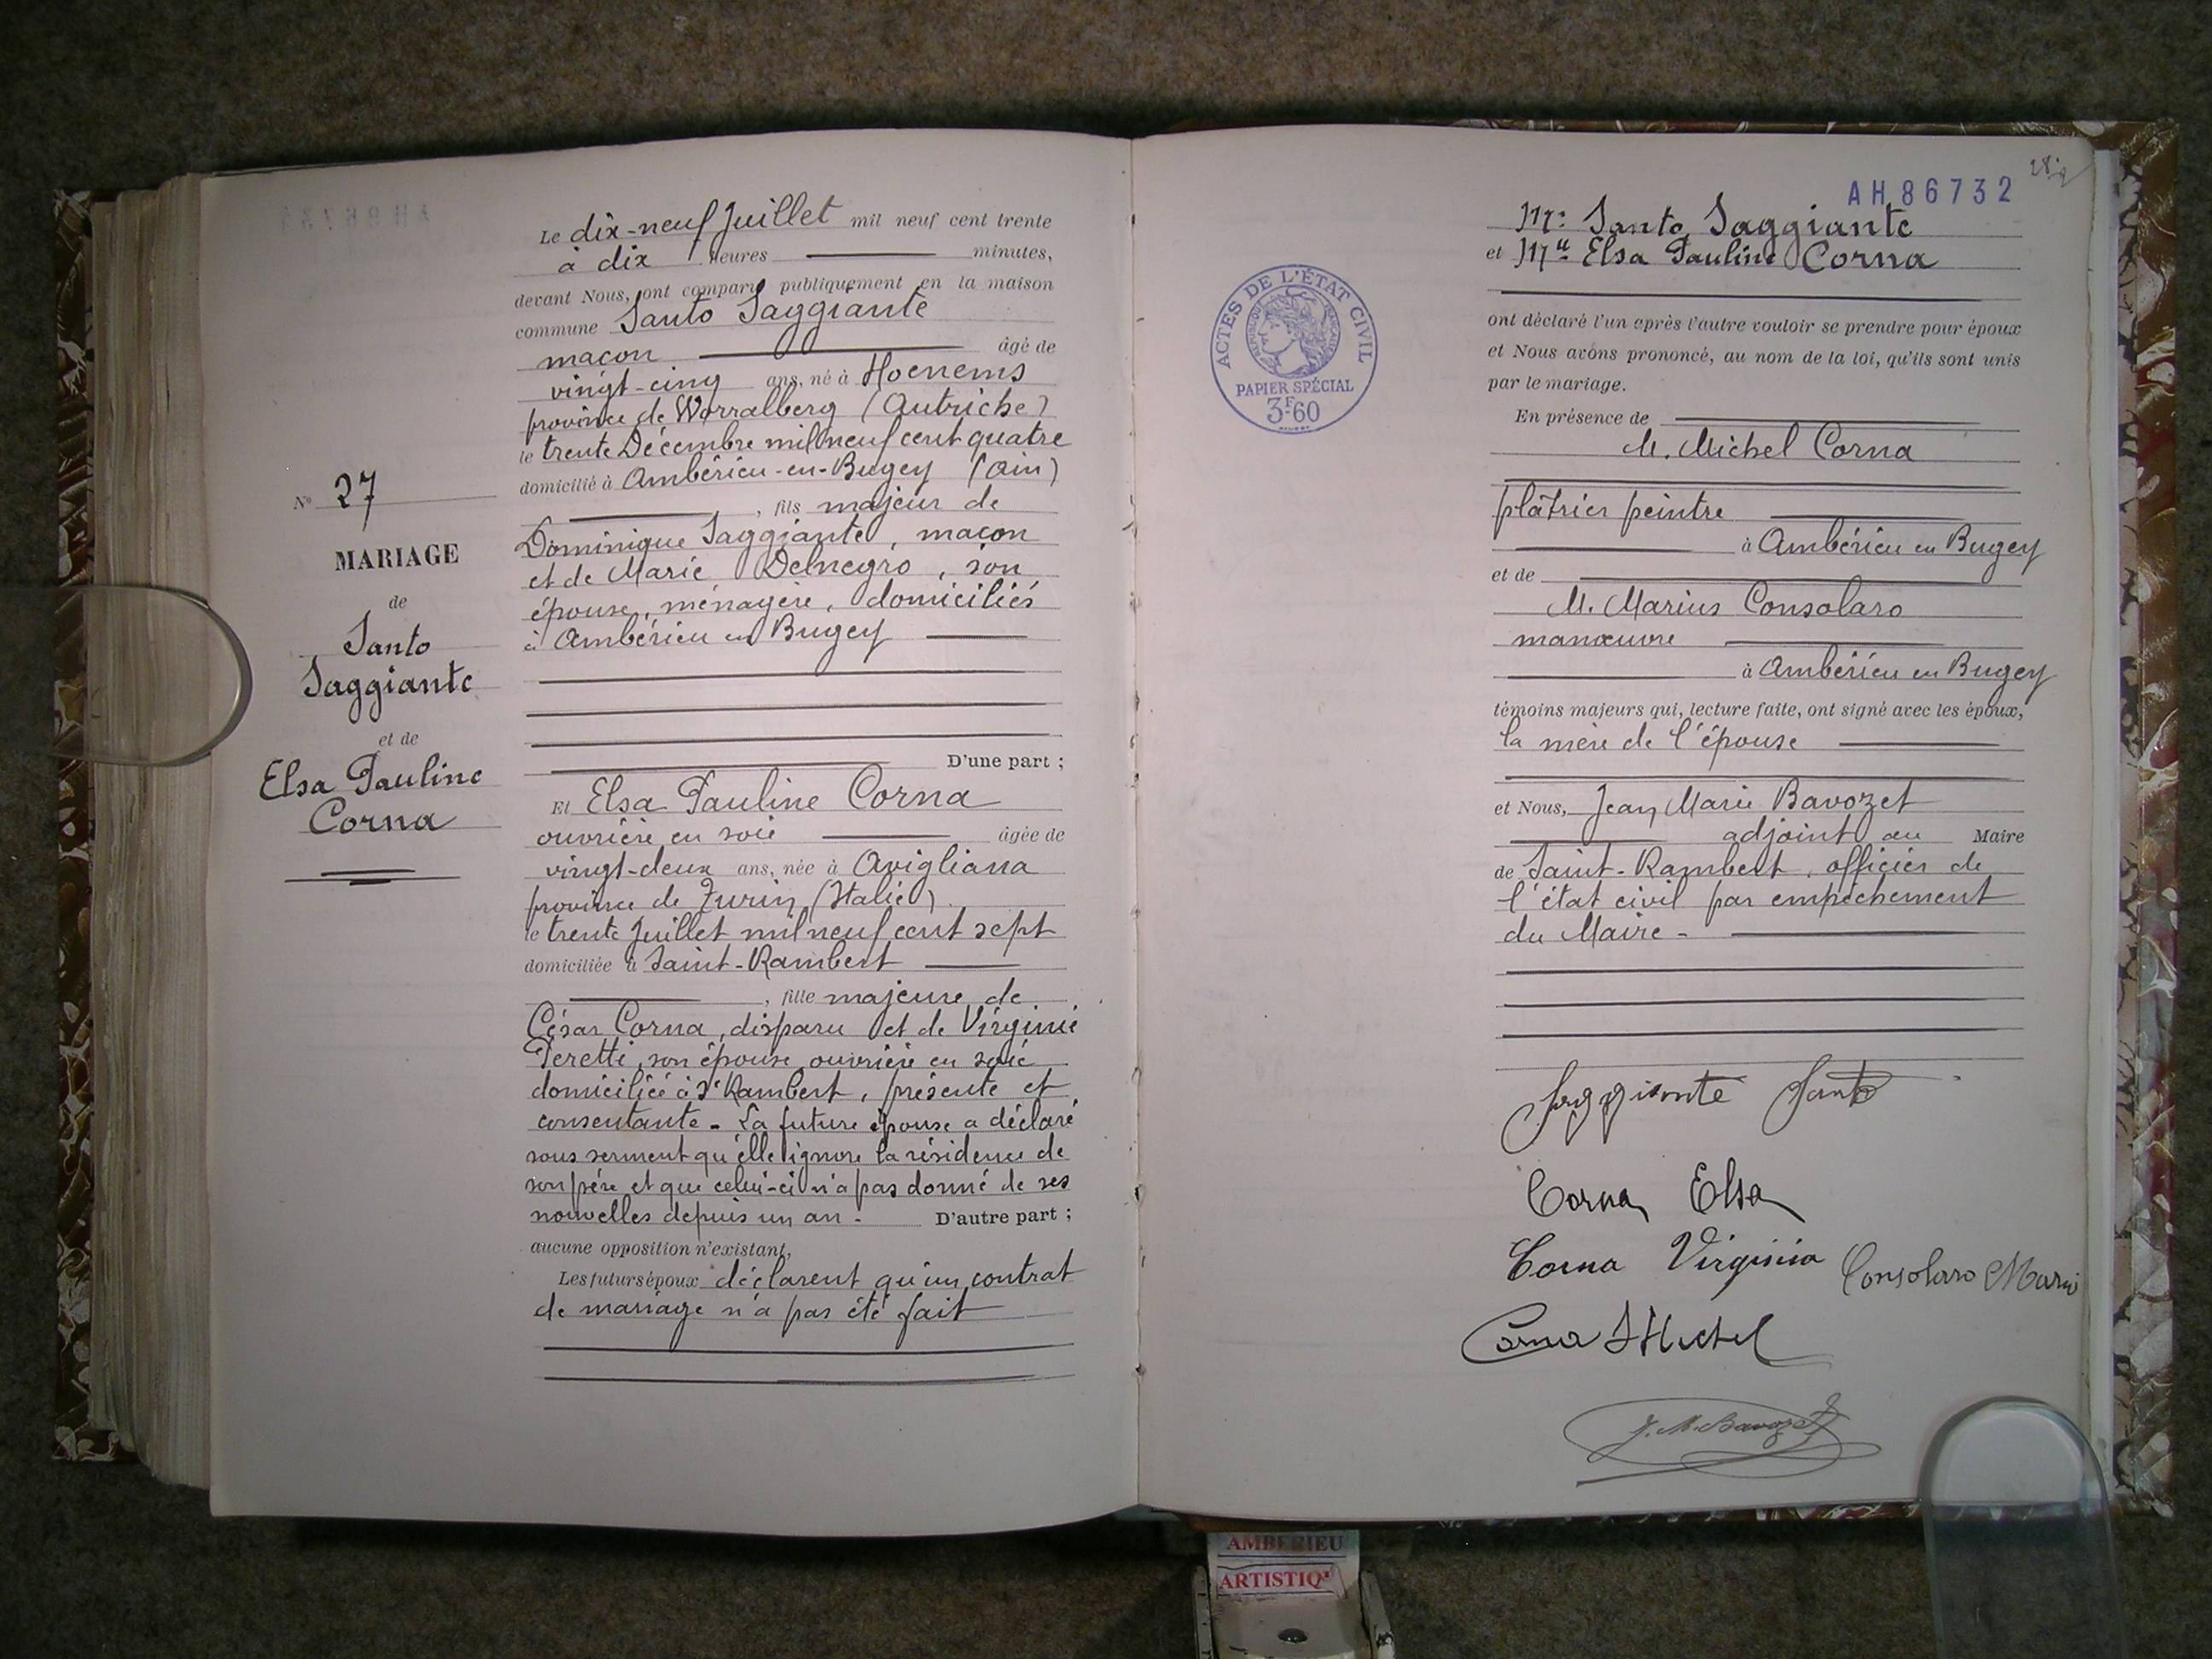 N° 27
MARIAGE
de
Santo
Saggiante
et de
Elsa Pauline
Corna
Le dix-neuf Juillet mil neuf cent trente
à dix heures minutes,
devant Nous, ont comparu publiquement en la maison
commune Santo Saggiante
maçon âgé de
vingt-cinq ans, né à Hoenems
province de Worralberg (Autriche)
le trente Décembre mil neuf cent quatre
domicilié à Ambérieu-en-Bugey (Ain)
, fils majeur de
Dominique Saggiante, maçon
et de Marie Delnegro, son
épouse, ménagère, domiciliés
à Ambérieu en Bugey
D'une part ;
Et Elsa Pauline Corna
ouvrière en soie âgée de
vingt-deux ans, née à Avigliana
province de Turin (Italie)
le trente Juillet mil neuf cent sept
domiciliée à Saint-Rambert
, fille majeure de
César Corna, disparu et de Virginie
Peretti, son épouse, ouvrière en soie
domiciliée à St Rambert, présente et
consentante - La future épouse a déclaré
sous serment qu'elle ignore la résidence de
son père et que celui-ci n'a pas donné de ses
nouvelles depuis un an - D'autre part ;
aucune opposition n'existant,
Les futurs époux déclarent qu'un contrat
de mariage n'a pas été fait
AH86732
ACTES DE L'ÉTAT CIVIL
RÉPUBLIQUE FRANÇAISE
PAPIER SPÉCIAL
3F.60
Mr. Santo Saggiante
et Mlle Elsa Pauline Corna
ont déclaré l'un après l'autre vouloir se prendre pour époux
et Nous avons prononcé, au nom de la loi, qu'ils sont unis
par le mariage.
En présence de
M. Michel Corna
plâtrier peintre
à Ambérieu en Bugey
et de
M. Marius Consolaro
manœuvre
à Ambérieu en Bugey
témoins majeurs qui, lecture faite, ont signé avec les époux,
la mère de l'épouse
et Nous, Jean Marie Bavozet
adjoint au Maire
de Saint-Rambert, officier de
l'état civil par empêchement
du Maire -
Saggiante Santo
Corna Elsa
Corna Virginia
Consolaro Mario
Corna Michel
J. M. Bavozet
AMBERIEU
ARTISTIQ